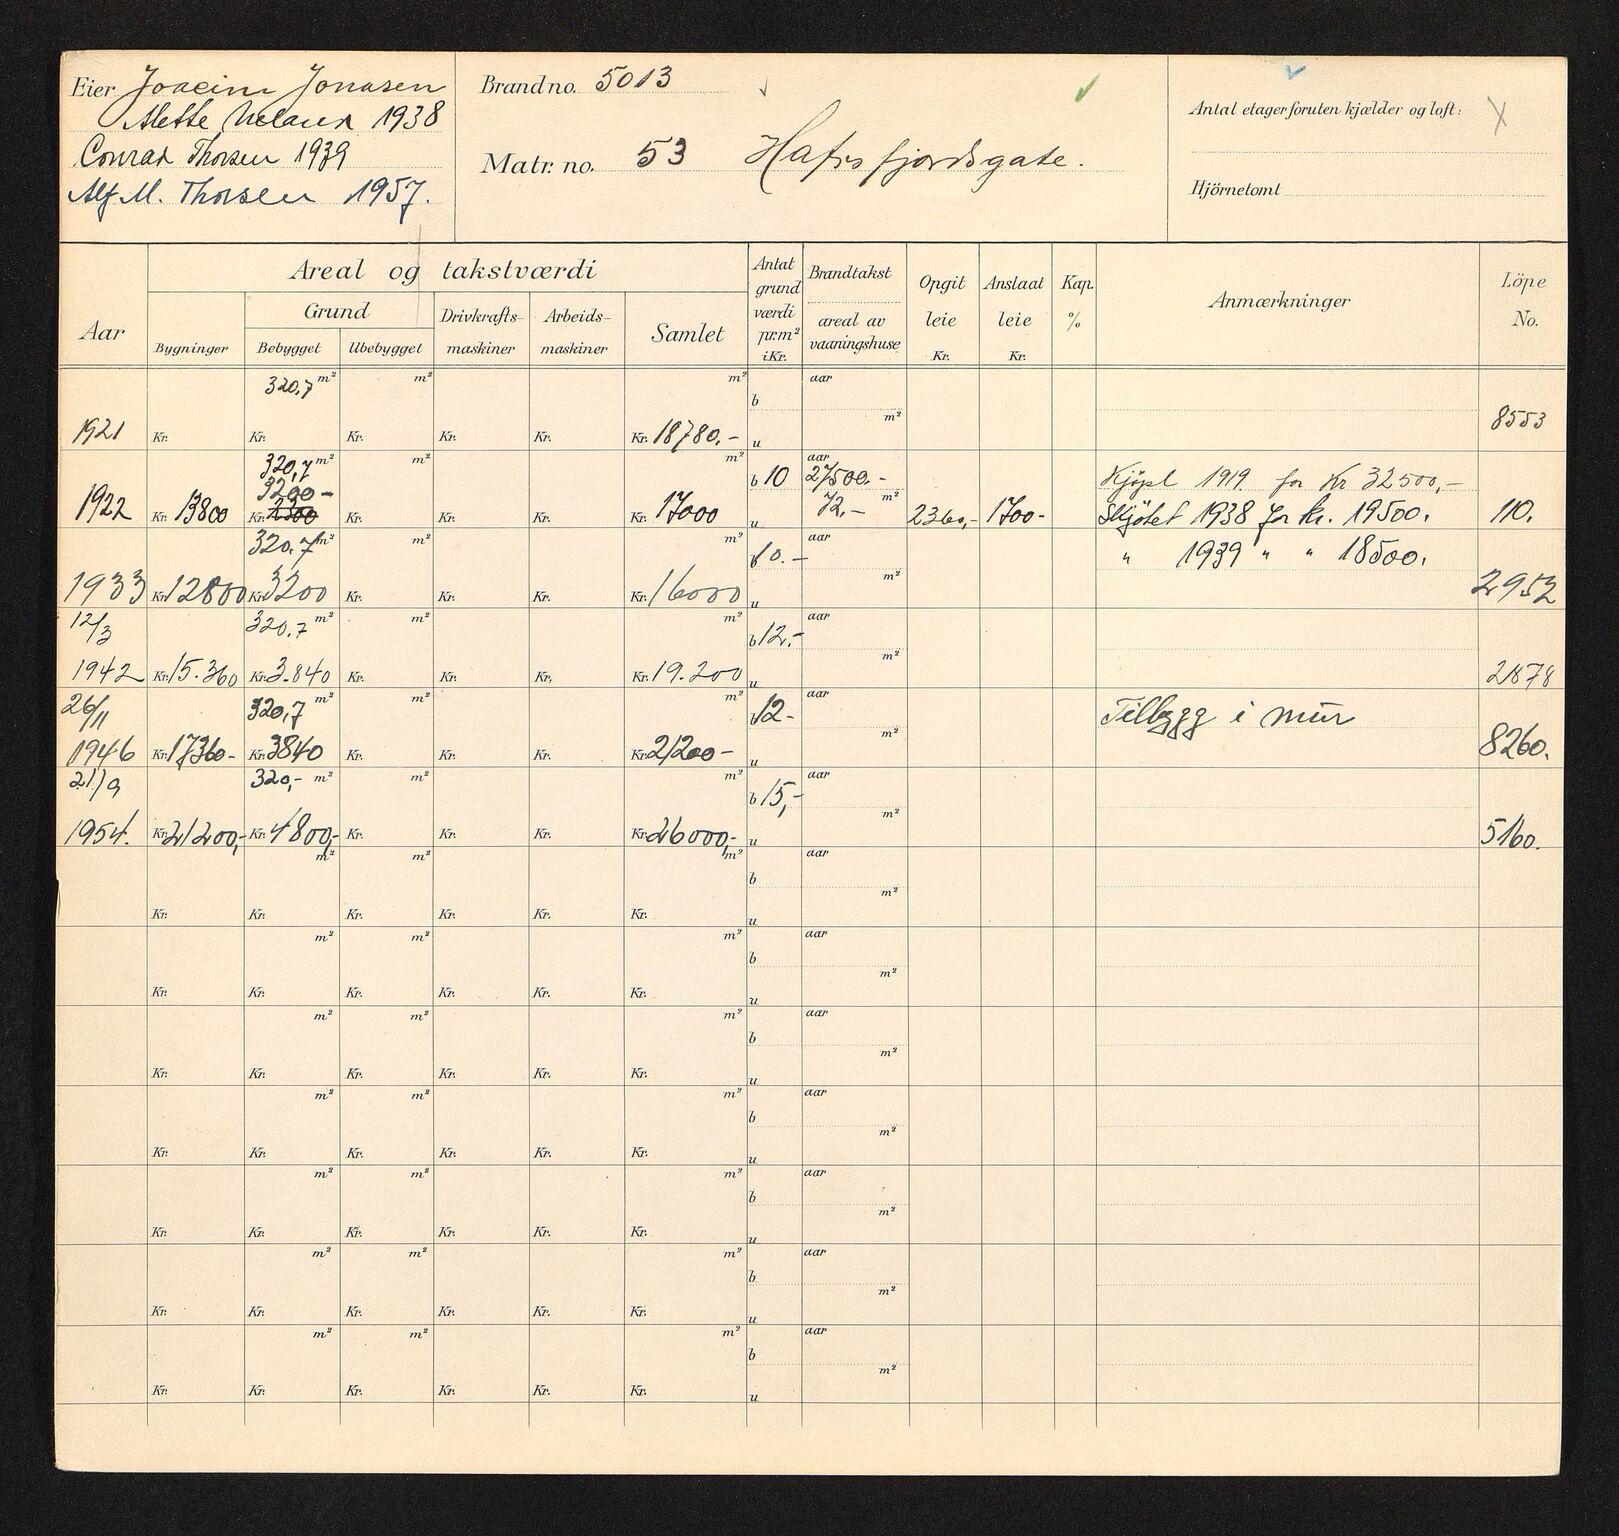 Eier Joacim Jonasen
Mette Meland 1938
Conrad Thorsen 1939
Alf M. Thorsen 1957.
Brand no. 5013
Matr. no. 53 Hafrsfjordsgate.
Antal etager foruten kjælder og loft:
Hjörnetomt
Aar
Areal og takstværdi
Grund
Bygninger Bebygget Ubebygget
Drivkrafts-
maskiner
Arbeids-
maskiner
Samlet
Antat
grund
værdi
pr. m²
i Kr.
Brandtakst
areal av
vaaningshuse
Opgit
leie
Kr.
Anslaat
leie
Kr.
Kap.
%
Anmærkninger
Löpe
No.
320,7 m² m² m² b aar m²
1921 Kr. Kr. Kr. Kr. Kr. Kr. 18780.- u 8553
320,7 m² m² m² b 10 aar 27500.- Kjöpt 1919 for Kr 32500,-
3200-
1922 Kr. 13800 Kr. Kr. Kr. Kr. Kr. 17000 u 72.- m² 2360,- 1700- Skjötet 1938 for kr. 19500. 110.
320.7 m² m² m² b 10.- aar " 1939 " " 18500.
1933 Kr. 12800 Kr. 3200 Kr. Kr. Kr. Kr. 16000 u m² 2952
12/3 320,7 m² m² m² b 12.- aar
1942 Kr. 15.360 Kr. 3.840 Kr. Kr. Kr. Kr. 19.200 u m² 2878
26/11 320,7 m² m² m² b 12- aar Tilbygg i mur
1946 Kr. 17360- Kr. 3840 Kr. Kr. Kr. Kr. 21200- u m² 8260.
21/9 320,- m² m² m² b 15,- aar
1954. Kr. 21200,- Kr. 4800,- Kr. Kr. Kr. Kr. 26000,- u m² 5160.
m² m² m² b aar m²
Kr. Kr. Kr. Kr. Kr. Kr. u
m² m² m² b aar m²
Kr. Kr. Kr. Kr. Kr. Kr. u
m² m² m² b aar m²
Kr. Kr. Kr. Kr. Kr. Kr. u
m² m² m² b aar m²
Kr. Kr. Kr. Kr. Kr. Kr. u
m² m² m² b aar m²
Kr. Kr. Kr. Kr. Kr. Kr. u
m² m² m² b aar m²
Kr. Kr. Kr. Kr. Kr. Kr. u
m² m² m² b aar m²
Kr. Kr. Kr. Kr. Kr. Kr. u